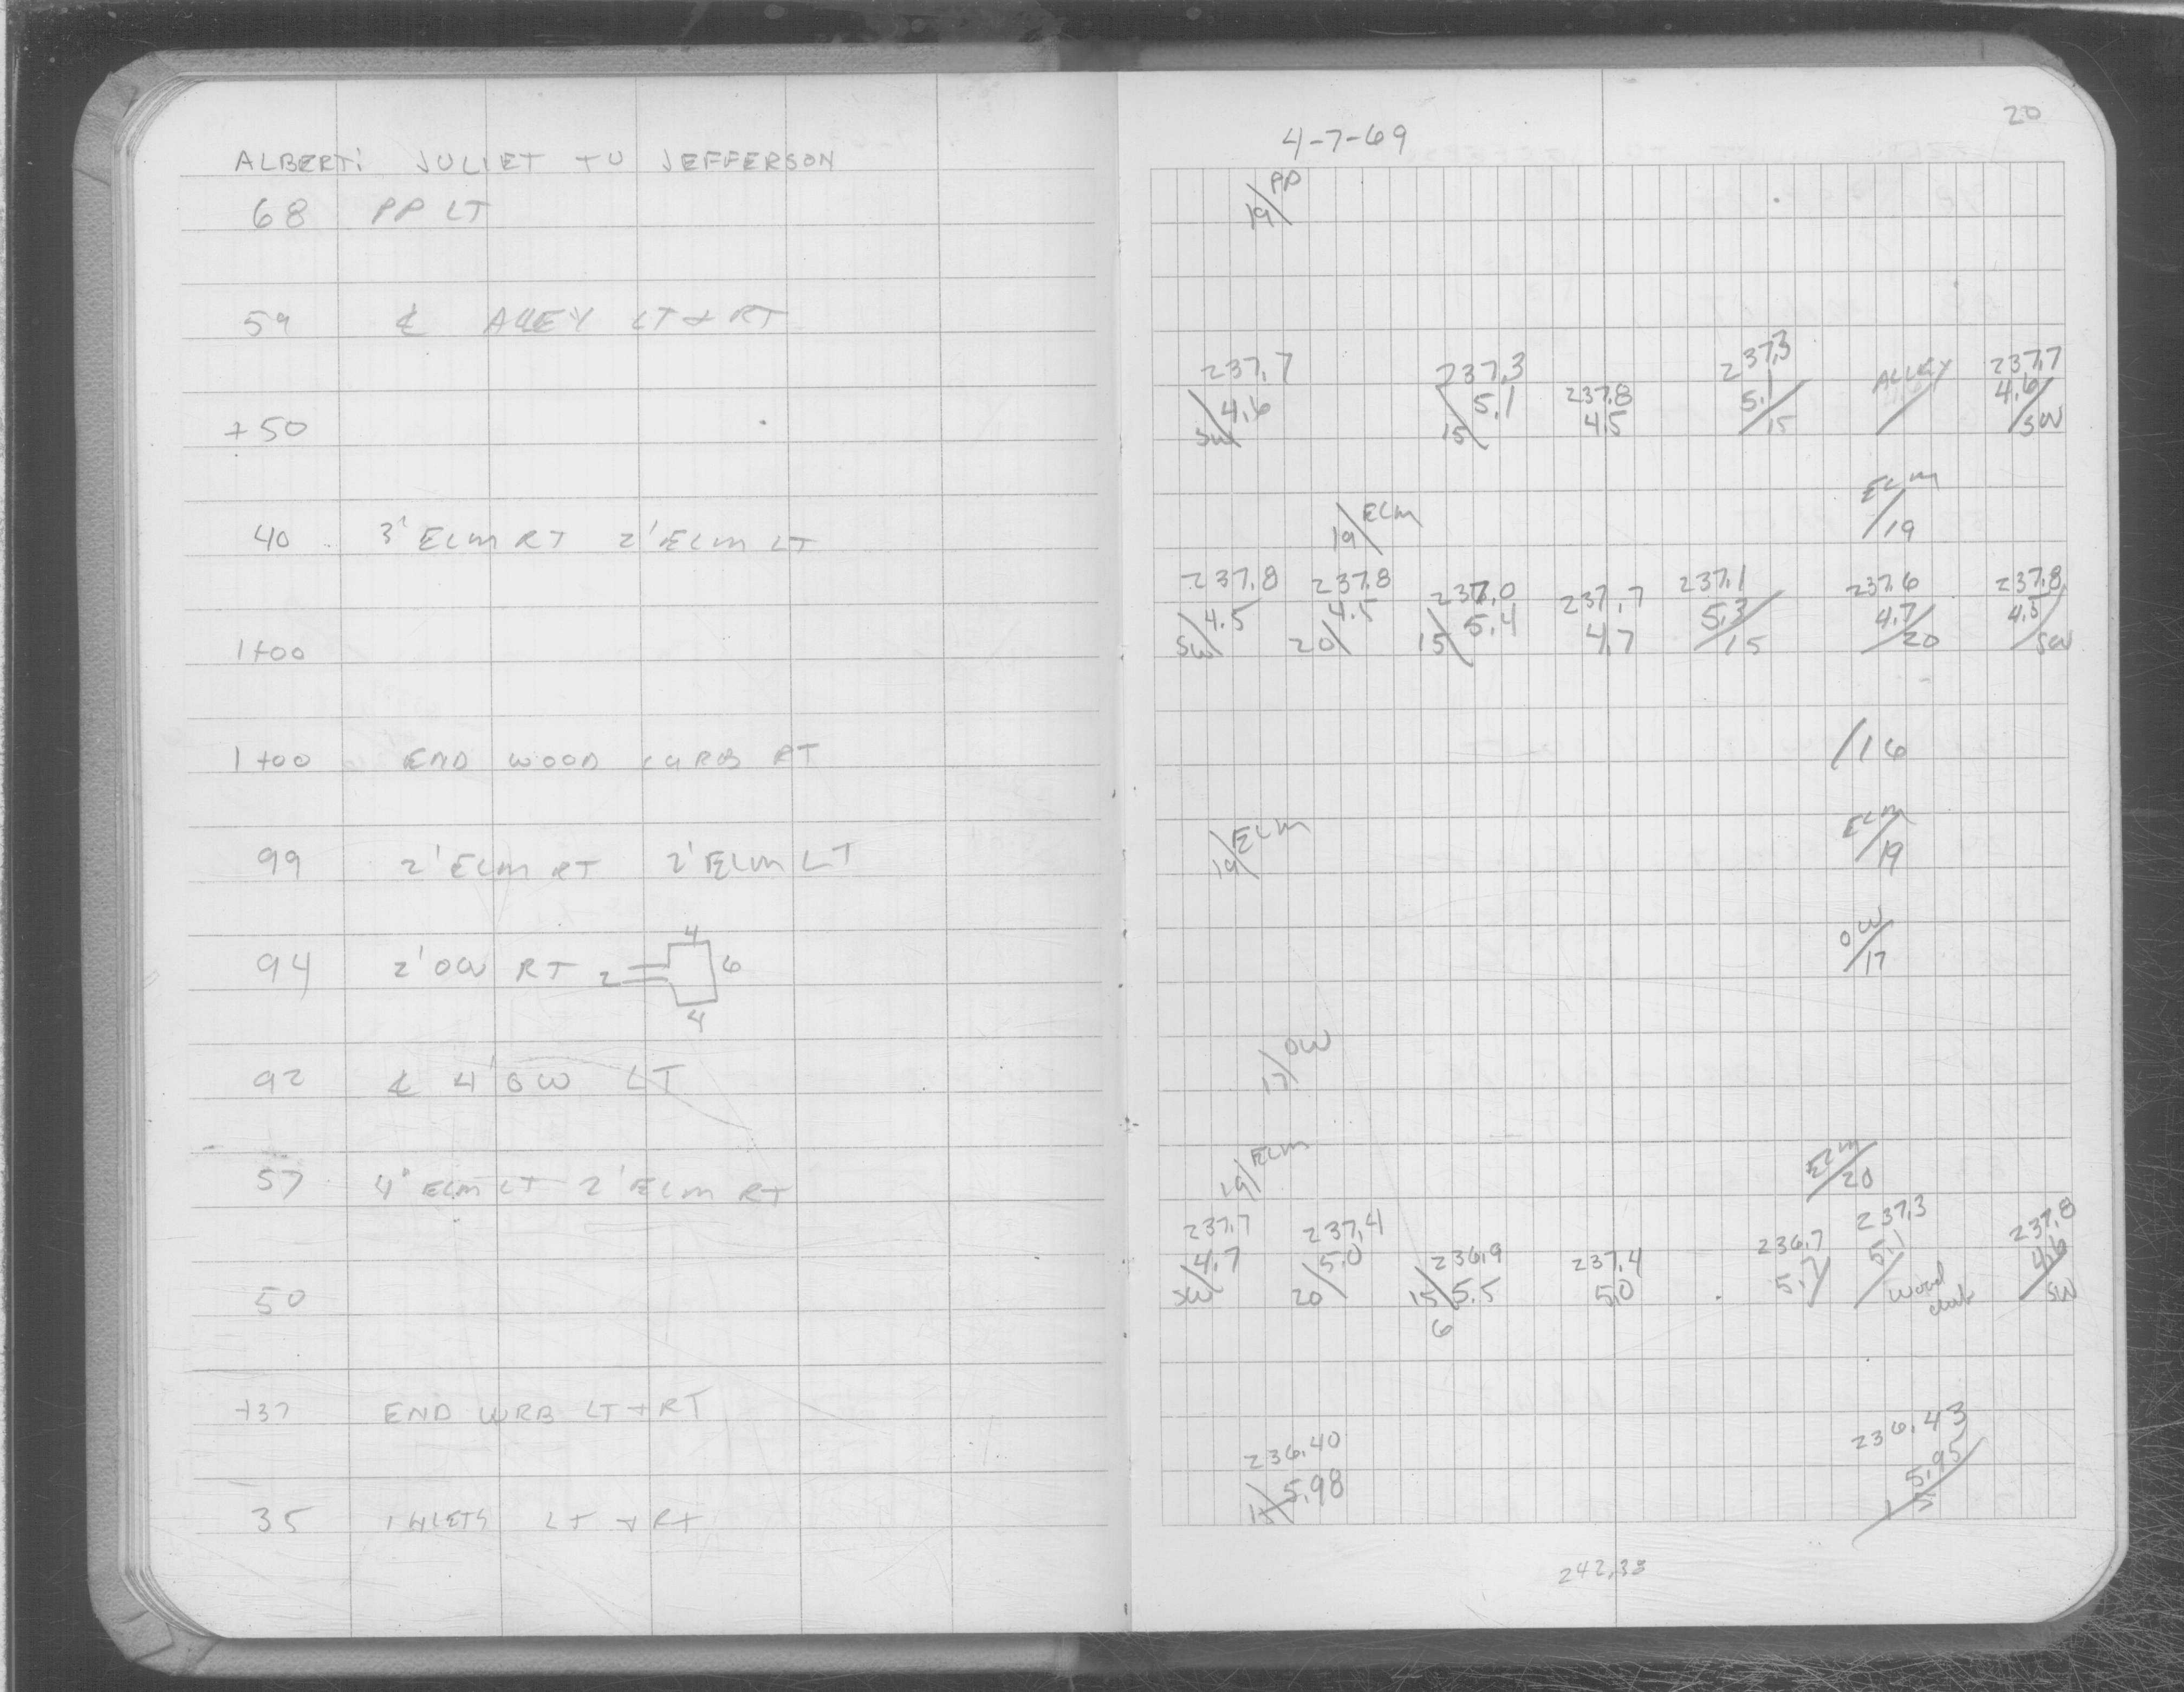 ALBERT: JULIET TO JEFFERSON
68 PP LT
59 ℄ ALLEY LT & RT
+50
40 3' ELM RT 2' ELM LT
1+00
1+00 END WOOD CURB RT
99 2' ELM RT 2' ELM LT
94 2' OW RT 2 4 6 4
92 ℄ 4' OW LT
57 4" ELM LT 2' ELM RT
50
+37 END CURB LT & RT
35 INLETS LT & RT
20
4-7-69
19 PP
237.7 237.3 237.8 237.3 ALLEY 237.7
4.6 5.1 4.5 5.1 4.6
SW 15 15 SW
19 ELM ELM 19
237.8 237.8 237.0 237.7 237.1 237.6 237.8
4.5 4.5 5.4 4.7 5.3 4.7 4.5
SW 20 15 15 20 SW
16
19 ELM ELM 19
OW 17
17 OW
19 ELM ELM 20
237.7 237.4 236.9 237.4 236.7 237.3 237.8
4.7 5.0 5.5 5.0 5.7 5.1 4.6
SW 20 15 wood SW
6
236.40 236.43
5.98 5.95
15
242.38